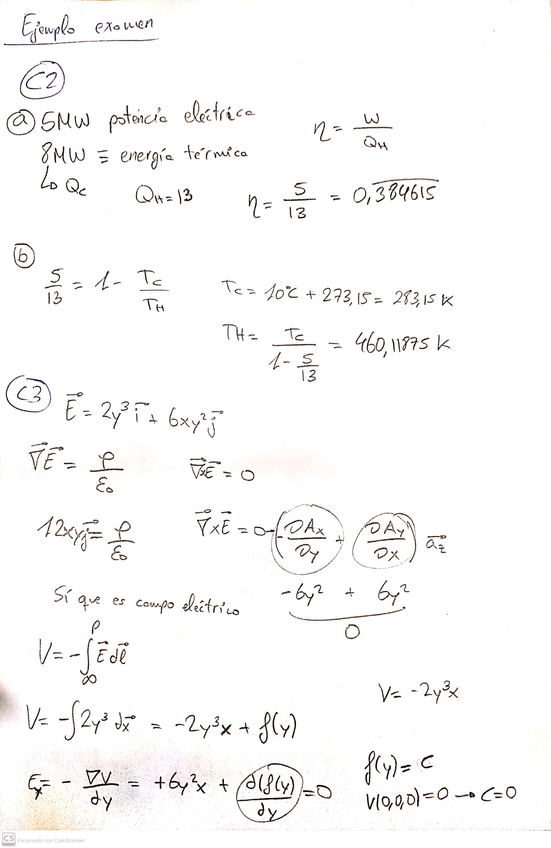 Ejemplo examen
C2
a 5MW potencia eléctrica
η = W / Q_H
8MW ≡ energía térmica
↳ Qc
Q_H = 13
η = 5/13 = 0,384615
b
5/13 = 1 - Tc/TH
Tc = 10℃ + 273,15 = 283,15 K
TH = Tc / (1 - 5/13) = 460,11875 K
C3
E = 2y³ i + 6xy² j
∇E = ρ/ε₀
∇xE = 0
12xyj = ρ/ε₀
∇xE = 0 - (∂Ax/∂y) + (∂Ay/∂x) a_z
Sí que es campo eléctrico
-6y² + 6y²
0
V = -∫_∞^P E dl
V = -2y³x
V = -∫2y³ dx = -2y³x + f(y)
Ex = - ∇V/dy = +6y²x + d(f(y))/dy = 0
f(y) = C
V(0,0,0) = 0 → C = 0
CS Escaneado con CamScanner